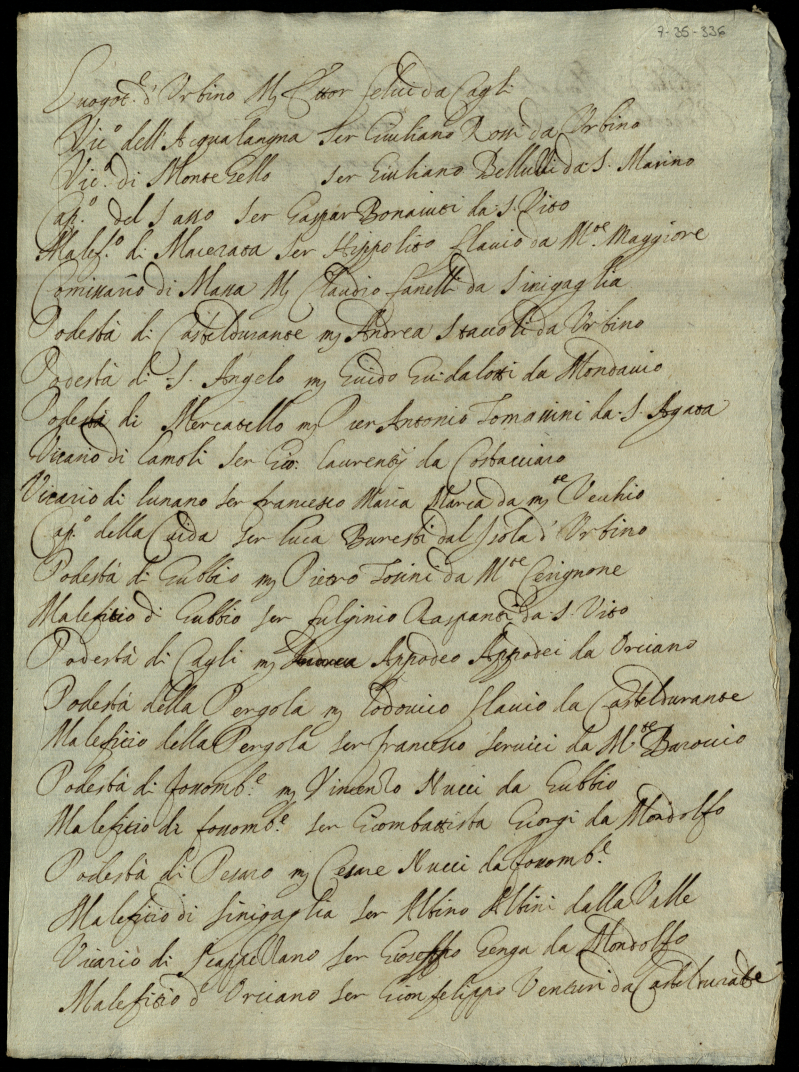 7-35-336
Luogot.e d'Urbino Mr Ettor Felici da Cagli
Vic.o dell'Acqualangna Ser Giuliano Rossi da Urbino
Vic.o di Monte Gello Ser Giuliano Bellucci da S. Marino
Cap.o del Sasso Ser Gaspar Bonaiuti da S. Vito
Malef.o di Macerata Ser Hippolito Flavio da M.te Maggiore
Comissario di Massa M Claudio Fanelli da Sinigaglia
Podestà di Casteldurante m Andrea Staccoli da Urbino
Podestà di S. Angelo m Guido Guidalotti da Mondavio
Podestà di Mercatello m Pier Antonio Tomassini da S. Agata
Vicario di Lamoli Ser Gio: Laurentij da Costacciaro
Vicario di Lunano Ser Francesco Maria Marca da m.te Vecchio
Cap.o della Guida Ser Luca Buresti dal Isola d'Urbino
Podestà di Gubbio m Pietro Tosini da M.te Cerignone
Malefitio di Gubbio Ser Fulginio Raspanti da S. Vito
Podestà di Cagli m Appodeo Appodei da Orciano
Podestà della Pergola m Lodovico Flavio da Casteldurante
Maleficio della Pergola Ser Francesco Servici da M.te Baroccio
Podestà di fossomb.e m Vincenzo Nucci da Gubbio
Malefitio di fossomb.e Ser Giombattista Giorgi da Mondolfo
Podestà di Pesaro m Cesare Nucci da fossomb.e
Maleficio di Sinigaglia Ser Albino Albini dalla Valle
Vicario di Scapezzano Ser Gioseffo Genga da Mondolfo
Malefitio d'Orciano Ser Gionfelippo Venturi da Casteldurante